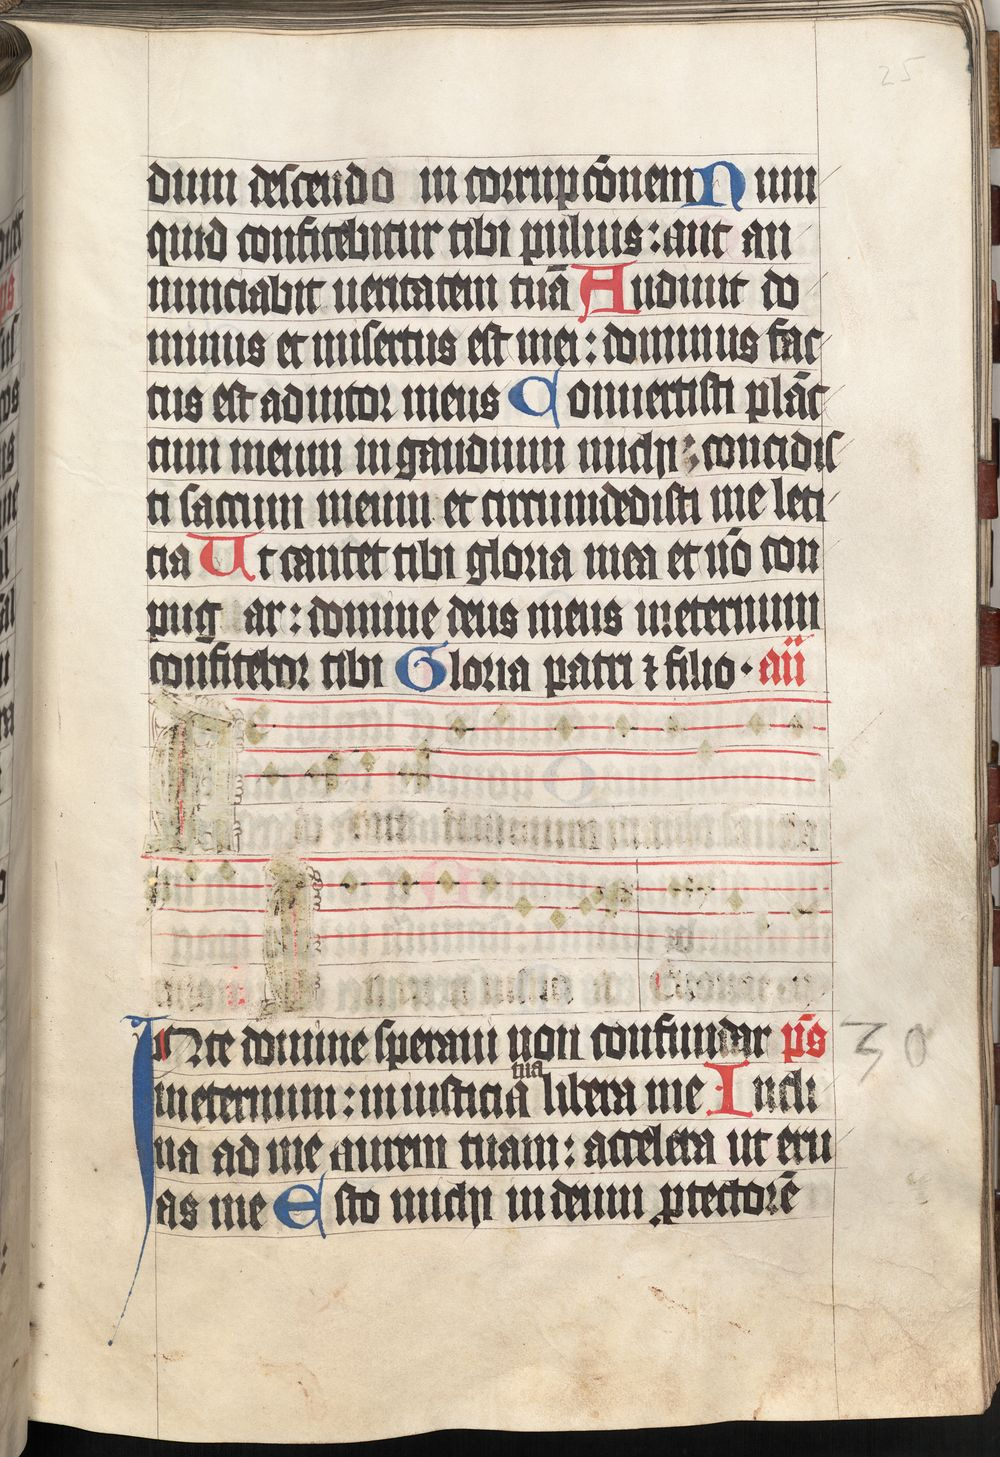 25
dum descendo in corrupc̄onem Num
quid confitebitur tibi puluis : aut an
nunciabit ueritatem tuā Audiuit do
minus et misertus est mei : dominus fac
tus est adiutor meus Conuertisti plāc
tum meum in gaudium michi : concidis
ti saccum meum et circumdedisti me leti
cia Ut cantet tibi gloria mea et nō con
pug ar : domine deus meus ineternum
confitebor tibi Gloria patri ⁊ filio · añ
INte domine speraui non confundar p̄s
30
ineternum : iniusticia tua libera me Incli
na ad me aurem tuam : accelera ut eru
as me Esto michi indeum ꝓtectorē